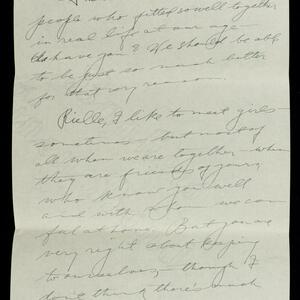 people who fitted so well together
in real life at our age
have you? We should be able
to be just so much better
for that very reason.
Rielle, I like to meet girls
sometimes — but not
all when we are together — when
they are friends of yours,
who know you well
and with whom we can
feel at home. But you are
very right about keeping
to ourselves, though I
don't think there's much